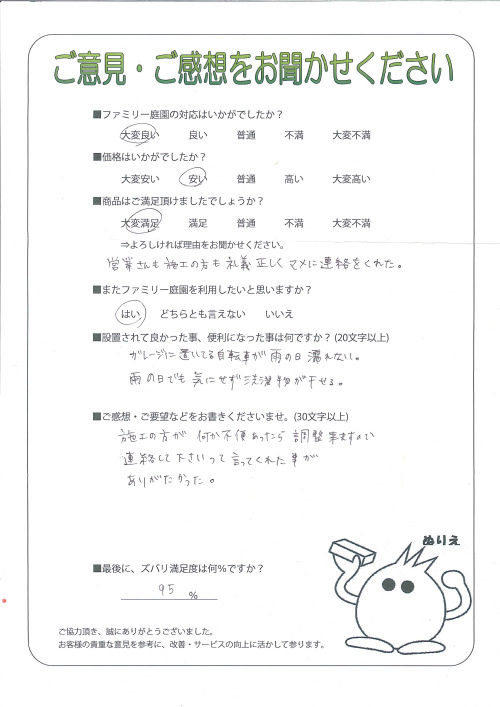 ご意見・ご感想をお聞かせください
■ファミリー庭園の対応はいかがでしたか？
大変良い 良い 普通 不満 大変不満
■価格はいかがでしたか？
大変安い 安い 普通 高い 大変高い
■商品はご満足頂けましたでしょうか？
大変満足 満足 普通 不満 大変不満
⇒よろしければ理由をお聞かせください。
営業さんも施工の方も礼義正しくマメに連絡をくれた。
■またファミリー庭園を利用したいと思いますか？
はい どちらとも言えない いいえ
■設置されて良かった事、便利になった事は何ですか？(20文字以上)
ガレージに置いてる自転車が雨の日濡れない。
雨の日でも気にせず洗濯物が干せる。
■ご感想・ご要望などをお書きくださいませ。(30文字以上)
施工の方が何か不便あったら調整来ますので
連絡して下さいって言ってくれた事が
ありがたかった。
ぬりえ
■最後に、ズバリ満足度は何%ですか？
95 %
ご協力頂き、誠にありがとうございました。
お客様の貴重な意見を参考に、改善・サービスの向上に活かして参ります。